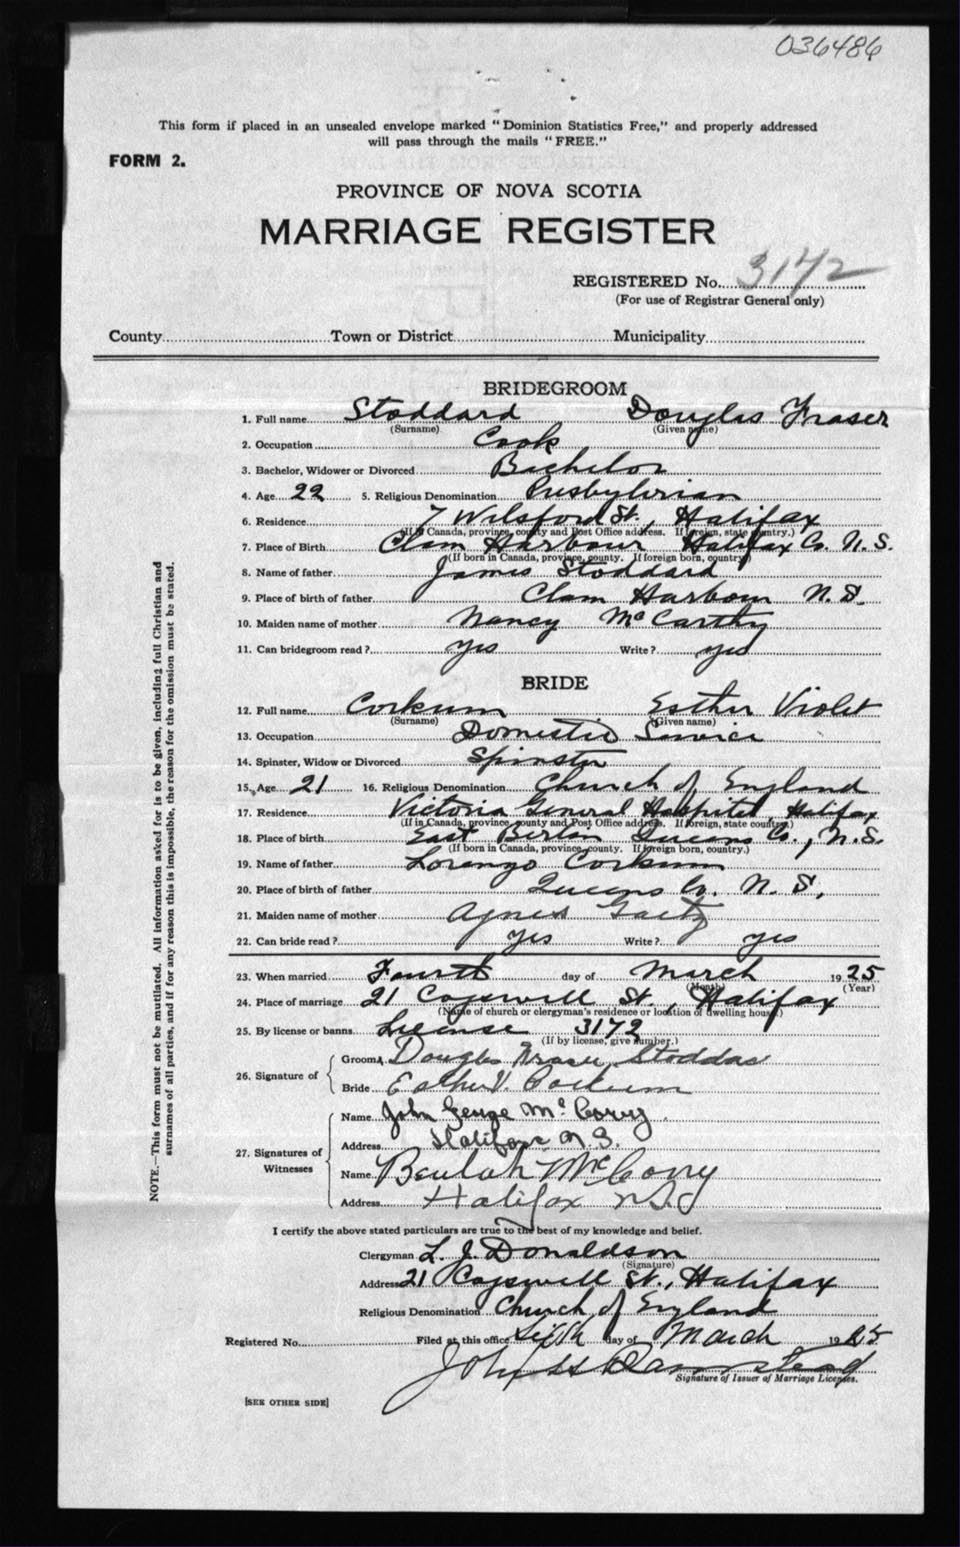 036486
This form if placed in an unsealed envelope marked "Dominion Statistics Free," and properly addressed
will pass through the mails "FREE."
FORM 2.
PROVINCE OF NOVA SCOTIA
MARRIAGE REGISTER
REGISTERED No. 3172
(For use of Registrar General only)
County Town or District Municipality
BRIDEGROOM
1. Full name Stoddard Douglas Fraser
(Surname) (Given name)
2. Occupation Cook
3. Bachelor, Widower or Divorced Bachelor
4. Age 22 5. Religious Denomination Presbyterian
6. Residence 7 Wilsford St., Halifax
(If in Canada, province, county and Post Office address. If foreign, state country.)
7. Place of Birth Clam Harbour Halifax Co. N.S.
(If born in Canada, province, county. If foreign born, country)
8. Name of father James Stoddard
9. Place of birth of father Clam Harbour N.S.
10. Maiden name of mother Nancy McCarthy
11. Can bridegroom read? yes Write? yes
BRIDE
12. Full name Corkum Esther Violet
(Surname) (Given name)
13. Occupation Domestic Service
14. Spinster, Widow or Divorced Spinster
15. Age 21 16. Religious Denomination Church of England
17. Residence Victoria General Hospital, Halifax
(If in Canada, province, county and Post Office address. If foreign, state country.)
18. Place of birth East Berlin Queens Co., N.S.
(If born in Canada, province, county. If foreign born, country.)
19. Name of father Lorenzo Corkum
20. Place of birth of father Queens Co. N.S.
21. Maiden name of mother Agnes Gaetz
22. Can bride read? yes Write? yes
23. When married Fourth day of March 1925
(Month) (Year)
24. Place of marriage 21 Cogswell St., Halifax
(Name of church or clergyman's residence or location of dwelling house.)
25. By license or banns License 3172
(If by license, give number.)
26. Signature of Groom Douglas Fraser Stoddard
Bride Esther V. Corkum
27. Signatures of Witnesses Name John George McCorry
Address Halifax N.S.
Name Beulah McCorry
Address Halifax N.S.
I certify the above stated particulars are true to the best of my knowledge and belief.
Clergyman L. J. Donaldson
(Signature)
Address 21 Cogswell St., Halifax
Religious Denomination Church of England
Registered No. Filed at this office day of March 1925
John
Signature of Issuer of Marriage Licenses.
[SEE OTHER SIDE]
NOTE.—This form must not be mutilated. All information asked for is to be given, including full Christian and
surnames of all parties, and if for any reason this is impossible, the reason for the omission must be stated.